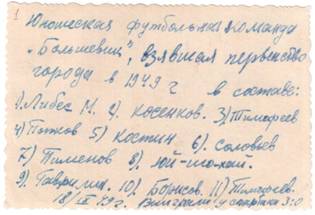 1
Юношеская футбольная команда
"Большевик", взявшая первенство
города в 1949 г в составе:
1). Либес М. 2). Косенков. 3) Тимофеев
4) Пыжов 5) Костин 6). Соловьев
7) Пименов 8).
9). Гаврилин. 10). Борисов. 11) Тимофеев.
18/IX 49 г. Выиграли у спартака 3:0